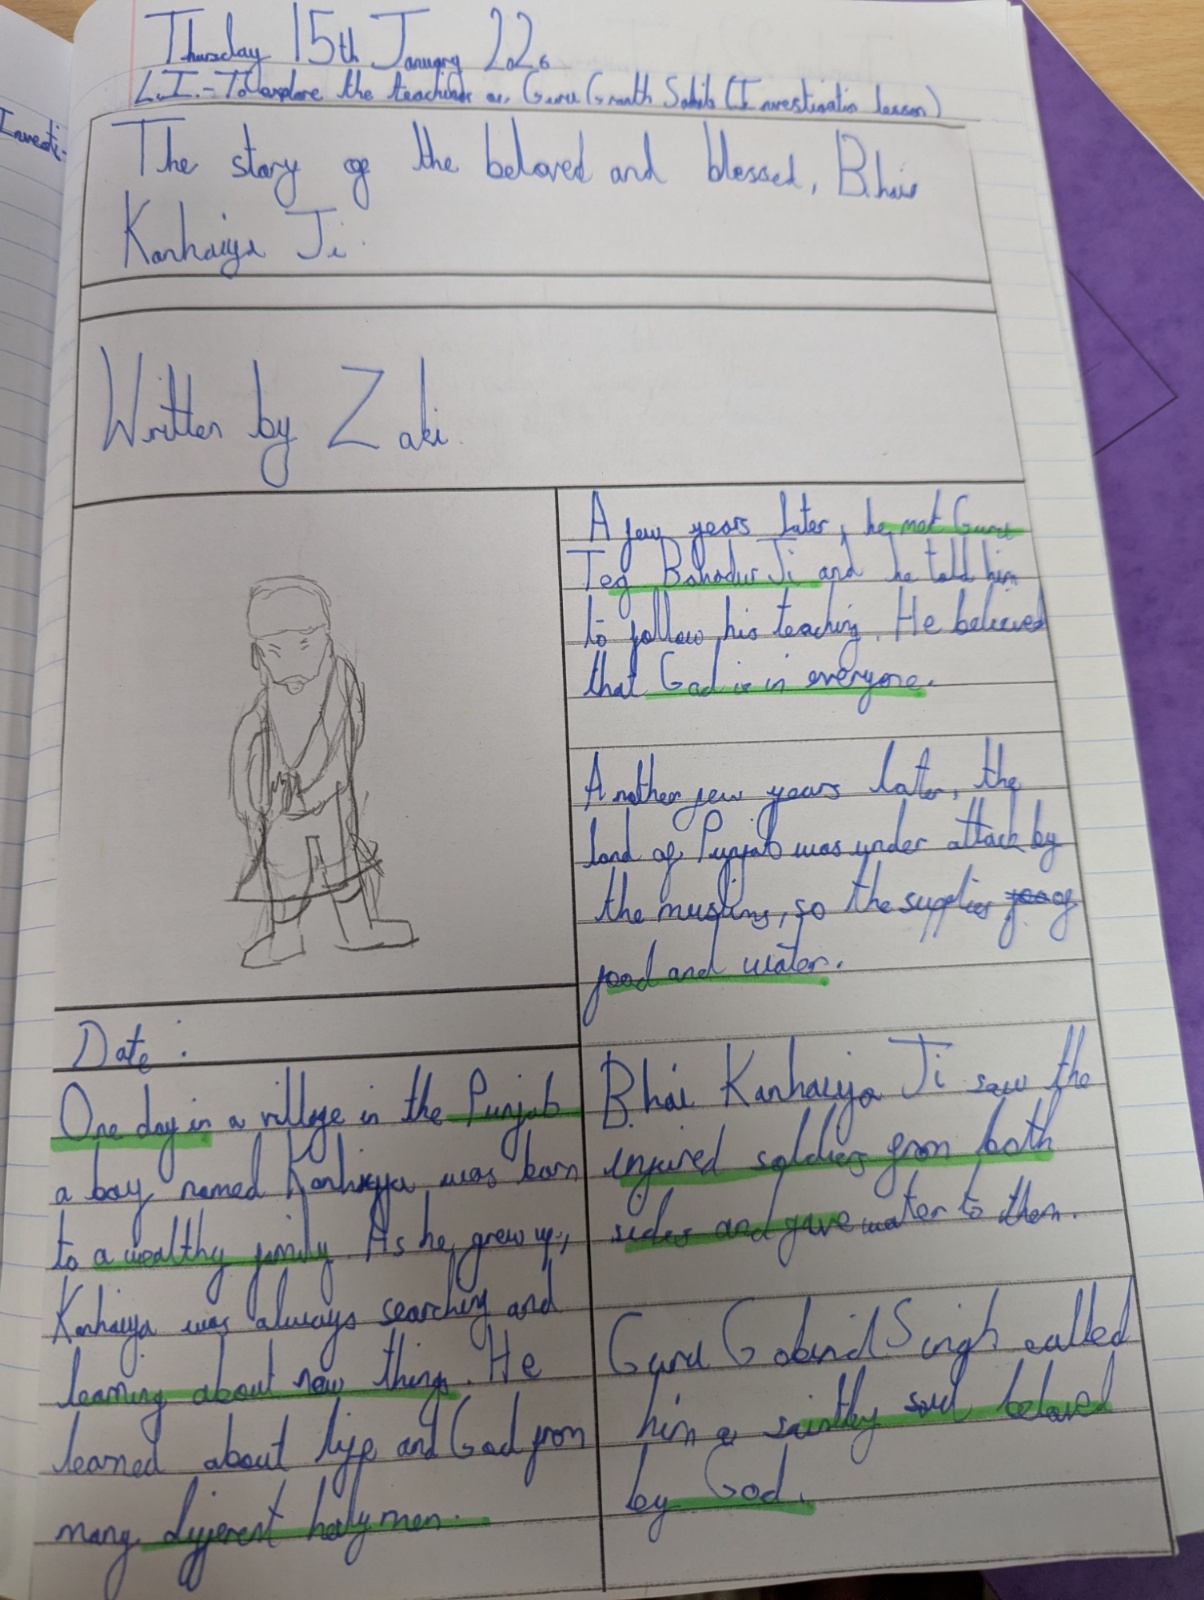 Investi-
Thursday 15th January 2026
L.I.- To explore the teachings of Guru Granth Sahib (Investigation lesson)
The story of the beloved and blessed, Bhai
Kanhaiya Ji.
Written by Zaki.
Date:
One day in a village in the Punjab
a boy named Kanhiyya was born
to a wealthy family. As he grew up,
Kanhaiya was always searching and
learning about new things. He
learned about life and God from
many different holy men.
A few years later, he met Guru
Teg Bahadur Ji and he told him
to follow his teaching. He believed
that God is in everyone.
Another few years later, the
land of Punjab was under attack by
the muslims, so the supplies of
food and water.
Bhai Kanhaiya Ji saw the
injured soldiers from both
sides and gave water to them.
Guru Gobind Singh called
him a saintly soul beloved
by God.